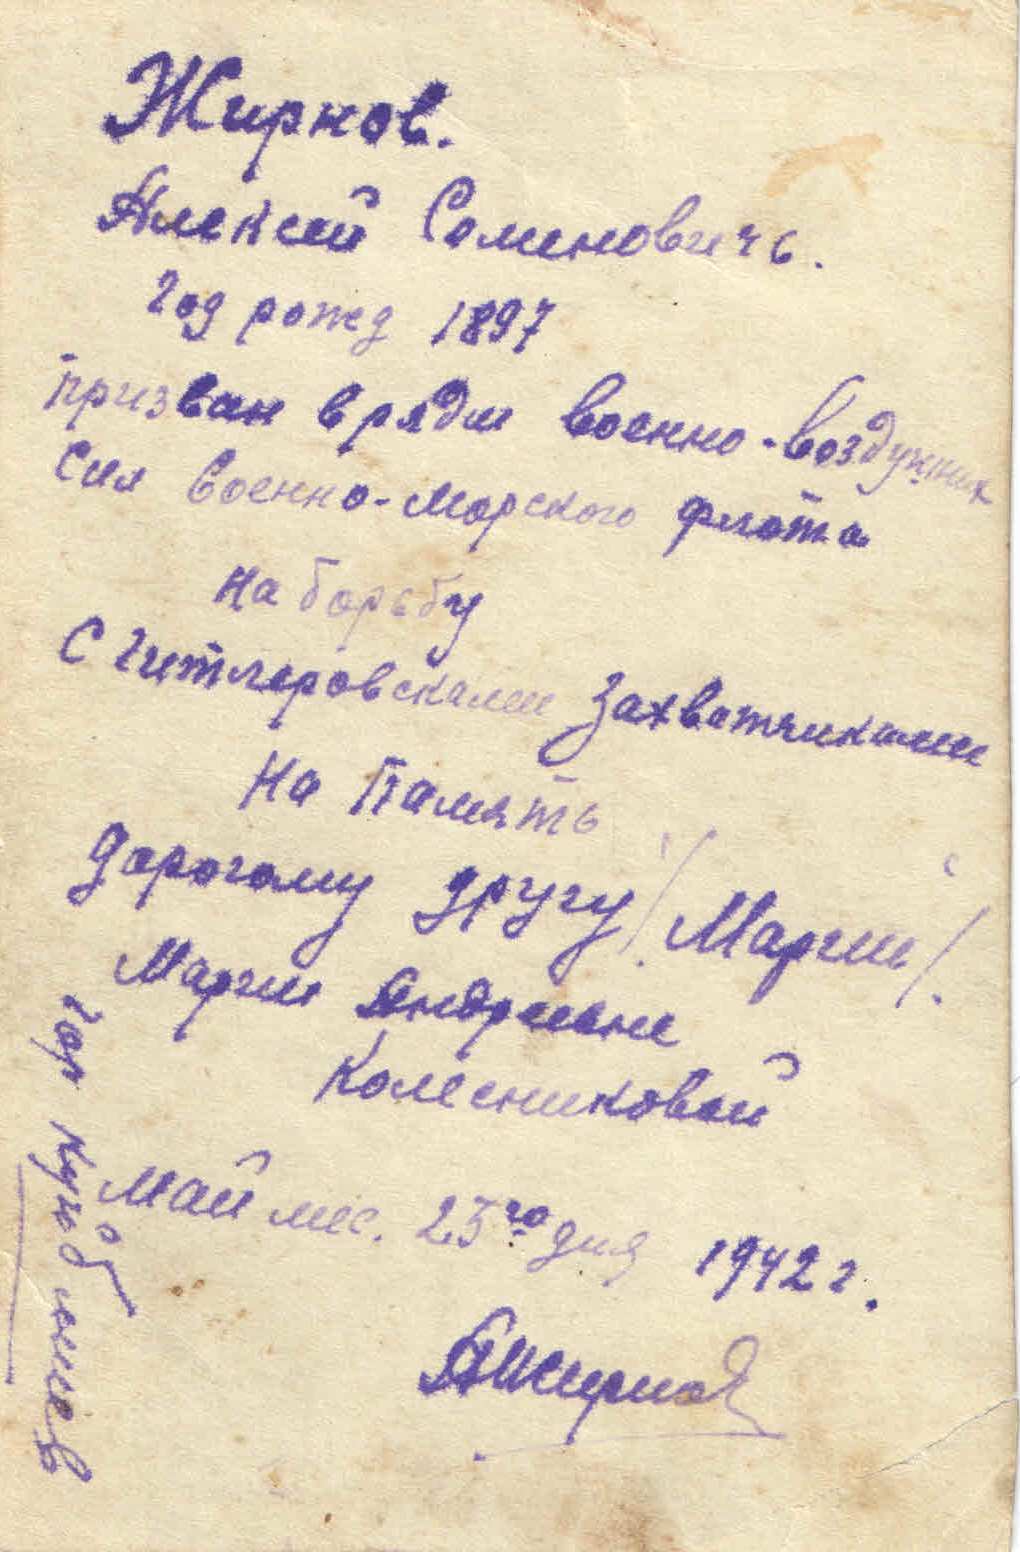 Жирнов.
Алексей Семеновичь.
Год рожд 1897
призван в ряды военно-воздушных
сил военно-морского флота
на борьбу
с гитлеровскими захватчиками
На память
дорогому другу /Марии/.
Марии Андриане
Колесниковой
май мес. 25го дня 1942 г.
АЖирнов
гор Куйбышев